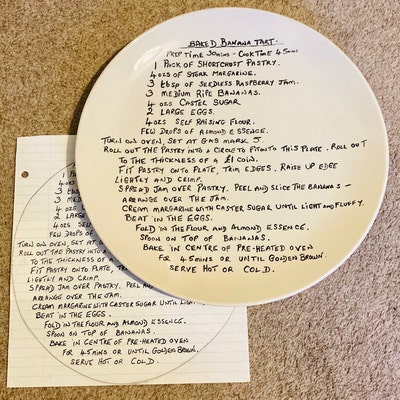 BAKED BANANA TART.
PREP TIME 30MINS - COOK TIME 45MINS
1 PACK OF SHORTCRUST PASTRY.
4 OZS OF STORK MARGARINE.
3 tbsp OF SEEDLESS RASPBERRY JAM.
3 MEDIUM RIPE BANANAS.
4 OZS CASTER SUGAR
2 LARGE EGGS.
4OZS SELF RAISING FLOUR.
FEW DROPS OF ALMOND ESSENCE.
TURN ON OVEN, SET AT GAS MARK 5.
ROLL OUT THE PASTRY INTO A CIRCLE TO FIT INTO THIS PLATE. ROLL OUT
TO THE THICKNESS OF A £1 COIN.
FIT PASTRY ONTO PLATE, TRIM EDGES. RAISE UP EDGE
LIGHTLY AND CRIMP.
SPREAD JAM OVER PASTRY. PEEL AND SLICE THE BANANAS -
ARRANGE OVER THE JAM.
CREAM MARGARINE WITH CASTER SUGAR UNTIL LIGHT AND FLUFFY.
BEAT IN THE EGGS.
FOLD IN THE FLOUR AND ALMOND ESSENCE.
SPOON ON TOP OF BANANAS.
BAKE IN CENTRE OF PRE-HEATED OVEN
FOR 45MINS OR UNTIL GOLDEN BROWN.
SERVE HOT OR COLD.
1 PA
4OZS
3 tb
3 MED
4 OZ
2 LAR
4OZS
FEW DROPS OF
TURN ON OVEN, SET AT G
ROLL OUT THE PASTRY INTO A
TO THE THICKNESS OF A
FIT PASTRY ONTO PLATE, TR
LIGHTLY AND CRIMP.
SPREAD JAM OVER PASTRY. PEEL AN
ARRANGE OVER THE JAM.
CREAM MARGARINE WITH CASTER SUGAR UNTIL LIGHT
BEAT IN THE EGGS.
FOLD IN THE FLOUR AND ALMOND ESSENCE.
SPOON ON TOP OF BANANAS.
BAKE IN CENTRE OF PRE-HEATED OVEN
FOR 45MINS OR UNTIL GOLDEN BROWN.
SERVE HOT OR COLD.